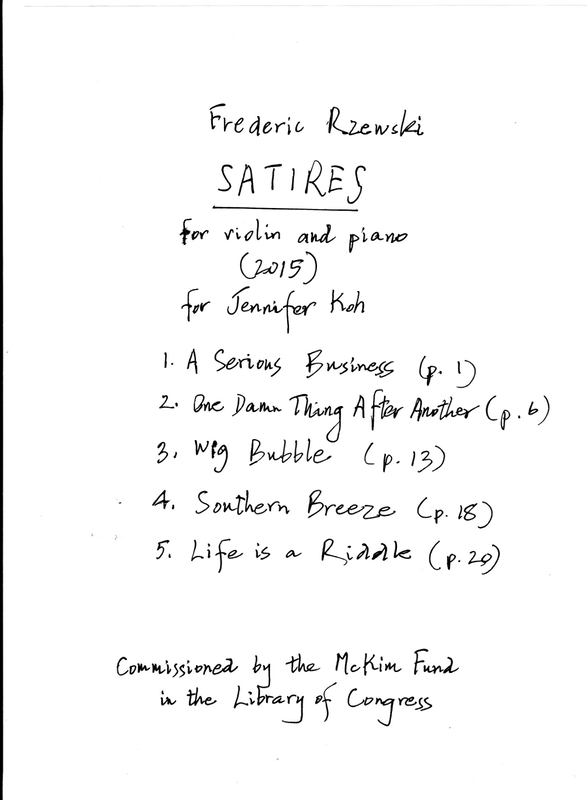 Frederic Rzewski
SATIRES
for violin and piano
(2015)
for Jennifer Koh
1. A Serious Business (p. 1)
2. One Damn Thing After Another (p. 6)
3. Wig Bubble (p. 13)
4. Southern Breeze (p. 18)
5. Life is a Riddle (p. 20)
Commissioned by the McKim Fund
in the Library of Congress